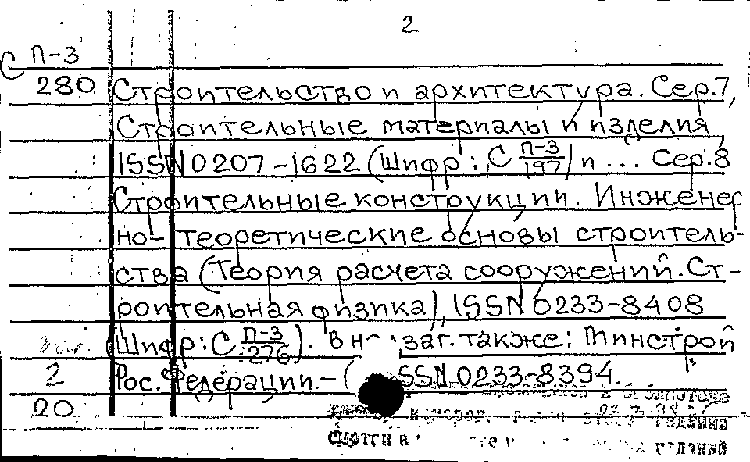 2
С П-3
280 Строительство и архитектура. Сер.7,
Строительные материалы и изделия
ISSN 0207-1622 (Шифр: С П-3/197) и ... Сер.8
Строительные конструкции. Инженер
но-теоретические основы строитель-
ства (Теория расчета сооружений. Ст-
роительная физика), ISSN 0233-8408
(Шифр: С П-3/276). В заг. также: Минстрой
2 Рос. Федерации. - ( ISSN 0233-8394.
20